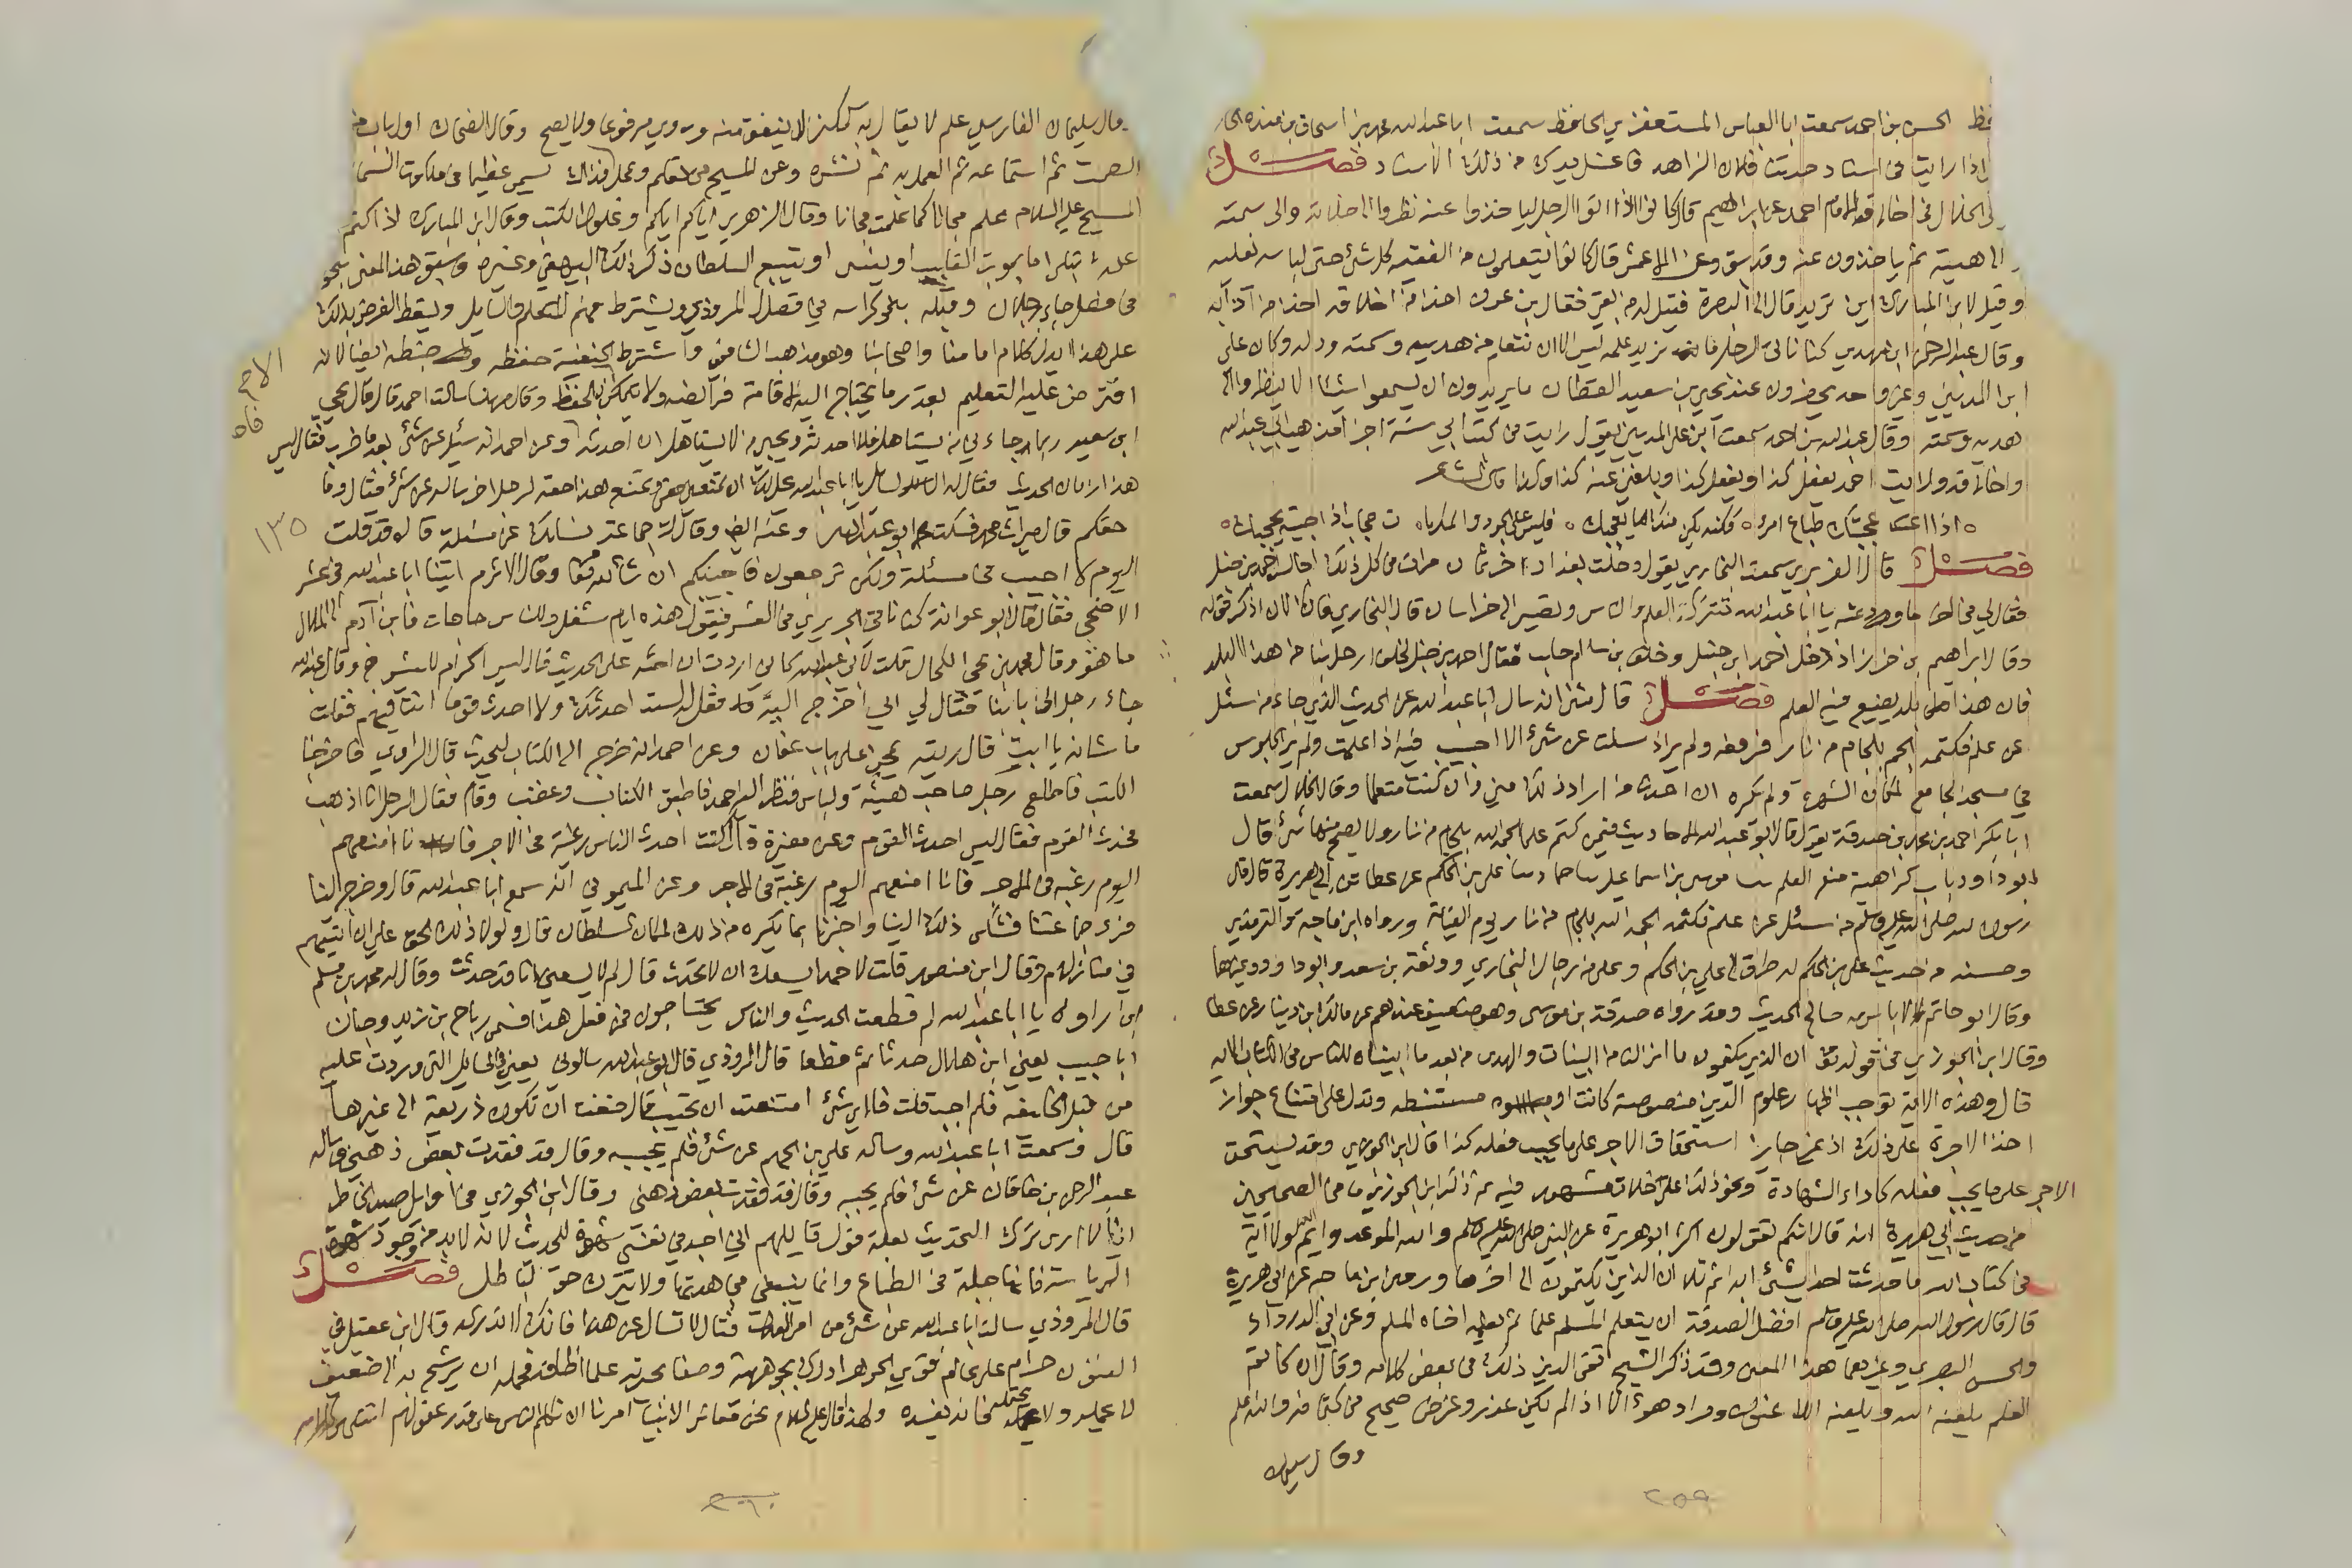 الحسن بن احمد سمعت ابا العباس المستغفري الحافظ سمعت ابا عبد الله محمد بن اسحاق بن منده الحافظ
اذا رايت في اسناد حدثنا فلان الزاهد فاغسل يدك من ذلك الاسناد فصل
الخلال في اخلاق الامام احمد عن ابراهيم قال كانوا اذا اتوا الرجل لياخذوا عنه نظروا الى صلاته والى سمته
الى هيئته ثم ياخذون عنه وقد سبق وعن الاعمش قال كانوا يتعلمون من الفقيه كل شئ حتى لباسه نعليه
وقيل لابن المبارك اين تريد قال الى البصرة فقيل له من بقي فقال ابن عون اخذ من اخلاقه اخذ من آدابه
وقال عبد الرحمن ابن مهدي كنا ناتي الرجل ما نريد علمه ليس الا ان نتعلم من هديه وسمته ودله وكان علي
ابن المديني وغير واحد يحضرون عند يحيى بن سعيد القطان ما يريدون ان يسمعوا شيئا الا ينظروا الى
هديه وسمته وقال عبد الله بن احمد سمعت ابن علي المديني يقول رايت في كتاب ابي ستة اجزا مذهب ابي عبد الله
واخلاقه ورايت احمد يفعل كذا ويفعل كذا وبلغني عنه كذا وكذا قال الشاعر
اذا اعجبتك طباع امرء فكنه يكن منك ما يعجبك فليس على الجود والمكرمات حجاب اذا جئته يحجبك
فصل قال الفربري سمعت البخاري يقول دخلت بغداد اخر ثمان مرات في كل ذلك اجالس احمد بن حنبل
فقال لي في اخر ما ودعته يا ابا عبد الله تترك العلم والناس وتصير الى خراسان قال البخاري فانا الان اذكر قوله
وقال ابراهيم بن خرزاذ دخل احمد ابن حنبل وخلف بن سالم حلب فقال احمد بن حنبل لخلف ارحل بنا من هذا البلد
فان هذا بلد يضيع فيه العلم فصل قال مثنى انه سال ابا عبد الله عن الحديث الذي جاء من سئل
عن علم فكتمه الجم بلجام من نار فرفعه ولم يرا اذا سئلت عن شئ الا اجبت فيه اذا علمت ولم ير الجلوس
في مسجد الجامع لمكان الشهرة ولم يكره ان احدث من اراد ذلك مني وان كنت متعلما وقال الخلال سمعت
ابا بكر احمد بن محمد بن صدقة يقول قال ابو عبد الله الاحاديث فيمن كتم علما الجمه الله بلجام من نار ولا يصح منها شئ قال
ابو داود باب كراهية منع العلم ثنا موسى بن اسماعيل ثنا حماد ثنا علي بن الحكم عن عطا عن ابي هريرة قال قال
رسول الله صلى الله عليه وسلم من سئل عن علم فكتمه الجمه الله بلجام من نار يوم القيامة ورواه ابن ماجه والترمذي
وحسنه من حديث علي بن الحكم له طرق الى علي بن الحكم وعلي من رجال البخاري ووثقه بن سعد وابو داود وغيرهما
وقال ابو حاتم لا باس به صالح الحديث وقد رواه صدقة بن موسى وهو ضعيف عندهم عن مالك ابن دينار عن عطا
وقال ابن الجوزي في قوله تعالى ان الذين يكتمون ما انزلنا من البينات والهدى من بعد ما بيناه للناس في الكتاب الاية
قال وهذه الاية توجب اظهار علوم الدين منصوصة كانت او مستنبطه وتدل على امتناع جواز
اخذ الاجرة على ذلك اذ غير جايز استحقاق الاجر على ما يجب فعله كذا قال ابن الجوزي وقد يستحق
الاجر على ما يجب فعله كاداء الشهادة ونحو ذلك على خلاف مشهور فيه ثم ذكر ابن الجوزي ما في الصحيحين
من حديث ابي هريرة انه قال انكم تقولون اكثر ابو هريرة عن النبي صلى الله عليه وسلم والله الموعد وايم الله لولا اية
في كتاب الله ما حدثت احدا بشئ ابدا ثم تلا ان الذين يكتمون الى اخرها وروى ابن ماجه عن ابي هريرة
قال قال رسول الله صلى الله عليه وسلم افضل الصدقة ان يتعلم المسلم علما ثم يعلمه اخاه المسلم وعن ابي الدرداء
والحسن البصري وغيرهما هذا المعنى وقد ذكر الشيخ تقي الدين ذلك في بعض كلامه وقال ان كاتم
العلم يلعنه الله ويلعنه اللاعنون ومراد هؤلاء اذا لم يكن عذر وغرض صحيح في كتمانه والله اعلم
وقال سليمان
٢٥٩
وقال سليمان الفارسي علم لا يقال به ككنز لا ينفق منه وروي مرفوعا ولا يصح وقال الضحاك اول باب من
الصمت ثم استماعه ثم العمل به ثم نشره وعن المسيح من تعلم وعمل فذاك يسمى عظيما في ملكوت السماء
المسيح عليه السلام علم مجانا كما علمت مجانا وقال الزهري اياكم اياكم وغلول الكتب وقال ابن المبارك اذا كتم
علمه ابتلي اما بموت القلب او ينسى او يتبع السلطان ذكر ذلك البيهقي وغيره وسبق هذا المعنى بنحو
في فصل جاء رجلان وقبله بنحو كراسه في فصل قال المروذي ويشترط فهم المتعلم والسايل ويسقط الفرض بذلك
على هذا يدل كلام امامنا واصحابنا وهو مذهب الشافعي واشترط الحنفية حفظه وضبطه ايضا لانه
افترض عليه التعليم بقدر ما يحتاج اليه لاقامة فرايضه ولا يتمكن الا بالحفظ وقال مهنا سالت احمد قال قال يحيى
ابن سعيد ربما جاءني من يستاهل فلا احدثه ويجي من لا يستاهل ان احدثه وعن احمد انه سئل عن شئ بعد ما ضرب فقال ليس
هذا زمان الحديث فقال له السايل يا ابا عبد الله يحل لك ان تمنعني حقي وتمنع هذا حقه لرجل اخر ساله عن شئ فقال وما
حقكم قال ميراث محمد فسكت ابو عبد الله وعنه ايضا وقال له جماعة نسالك عن مسئلة قال قد قلت
اليوم لا اجيب في مسئلة ولكن ترجعون فاجيبكم ان شاء الله تعالى وقال الاثرم اتينا ابا عبد الله في عشر
الاضحى فقال قال ابو عوانة كنا ناتي الجريري في العشر فيقول هذه ايام شغل وللناس حاجات فابن آدم الى الملال
ما هو وقال محمد بن يحيى الكحال قلت لابي عبد الله كاني اردت ان احثه على الحديث قال ليس اكرام للشيوخ وقال عبد الله
جاء رجل الى بابنا فقال لي ابي اخرج اليه فقل له لست احدثك ولا احدث قوما انت فيهم فقلت
ما شانه يا ابت قال رايته يمجن على باب عفان وعن احمد انه خرج الى الكتاب ليحدث قال الراوي فاخرجنا
الكتب فاطلع رجل صاحب هيئة ولباس فنظر اليه احمد فاطبق الكتاب وغضب وقام فقال الرجل انا اذهب
فحدث القوم فقال ليس احدث القوم وعن مغيرة قال كنت احدث الناس رغبة في الاجر فانا امنعهم
اليوم رغبة في الاجر فانا امنعهم اليوم رغبة في الاجر وعن الميموني انه سمع ابا عبد الله قال وخرج الينا
فراى جماعتنا فشكى ذلك الينا واخبرنا بما يكره من ذلك لمكان السلطان قال ولولا ذلك لحق علي ان اتيهم
في منازلهم وقال ابن منصور قلت لاحمد يسعك ان لا تحدث قال لم لا يسعني انا قد حدثت وقال له محمد بن مسلم
ابن وارة يا ابا عبد الله لم قطعت الحديث والناس يحتاجون فمن فعل هذا فسمى رباح بن زيد وحبان
ابا حبيب يعني ابن هلال حدثا ثم قطعا قال المروذي قال ابو عبد الله سالوني يعني في المسايل التي وردت عليه
من قبل الخليفه فلم اجب قلت فلاي شئ امتنعت ان تجيب قال خفت ان تكون ذريعة الى غيرها
قال وسمعت ابا عبد الله وساله علي بن الجهم عن شئ فلم يجبه وقال قد فقدت بعض ذهني وساله
عبد الرحمن بن خاقان عن شئ فلم يجبه وقال قد فقدت بعض ذهني وقال ابن الجوزي في اوايل صيد الخاطر
انا لا ارى ترك التحديث بعلة قول قايلهم اني اجد في نفسي شهوة للحدث لانه لا بد من وجود شهوة
الرياسة فانها جبلة في الطباع وانما ينبغي مجاهدتها ولا يترك حق لباطل فصل
قال المروذي سالت ابا عبد الله عن شئ من امر العدل فقال لا تسال عن هذا فانك لا تدركه وقال ابن عقيل في
الفنون حرام على عالم قوي الجوهر ادرك بجوهريته وصفا نحريزته علما اطاقه فحمله ان يرشح به الى ضعيف
لا يحمله ولا يحتمله فانه يفسده ولهذا قال عليه السلام نحن معاشر الانبياء امرنا ان نكلم الناس على قدر عقولهم انتهى كلامه
١٣٥
٢٦٠